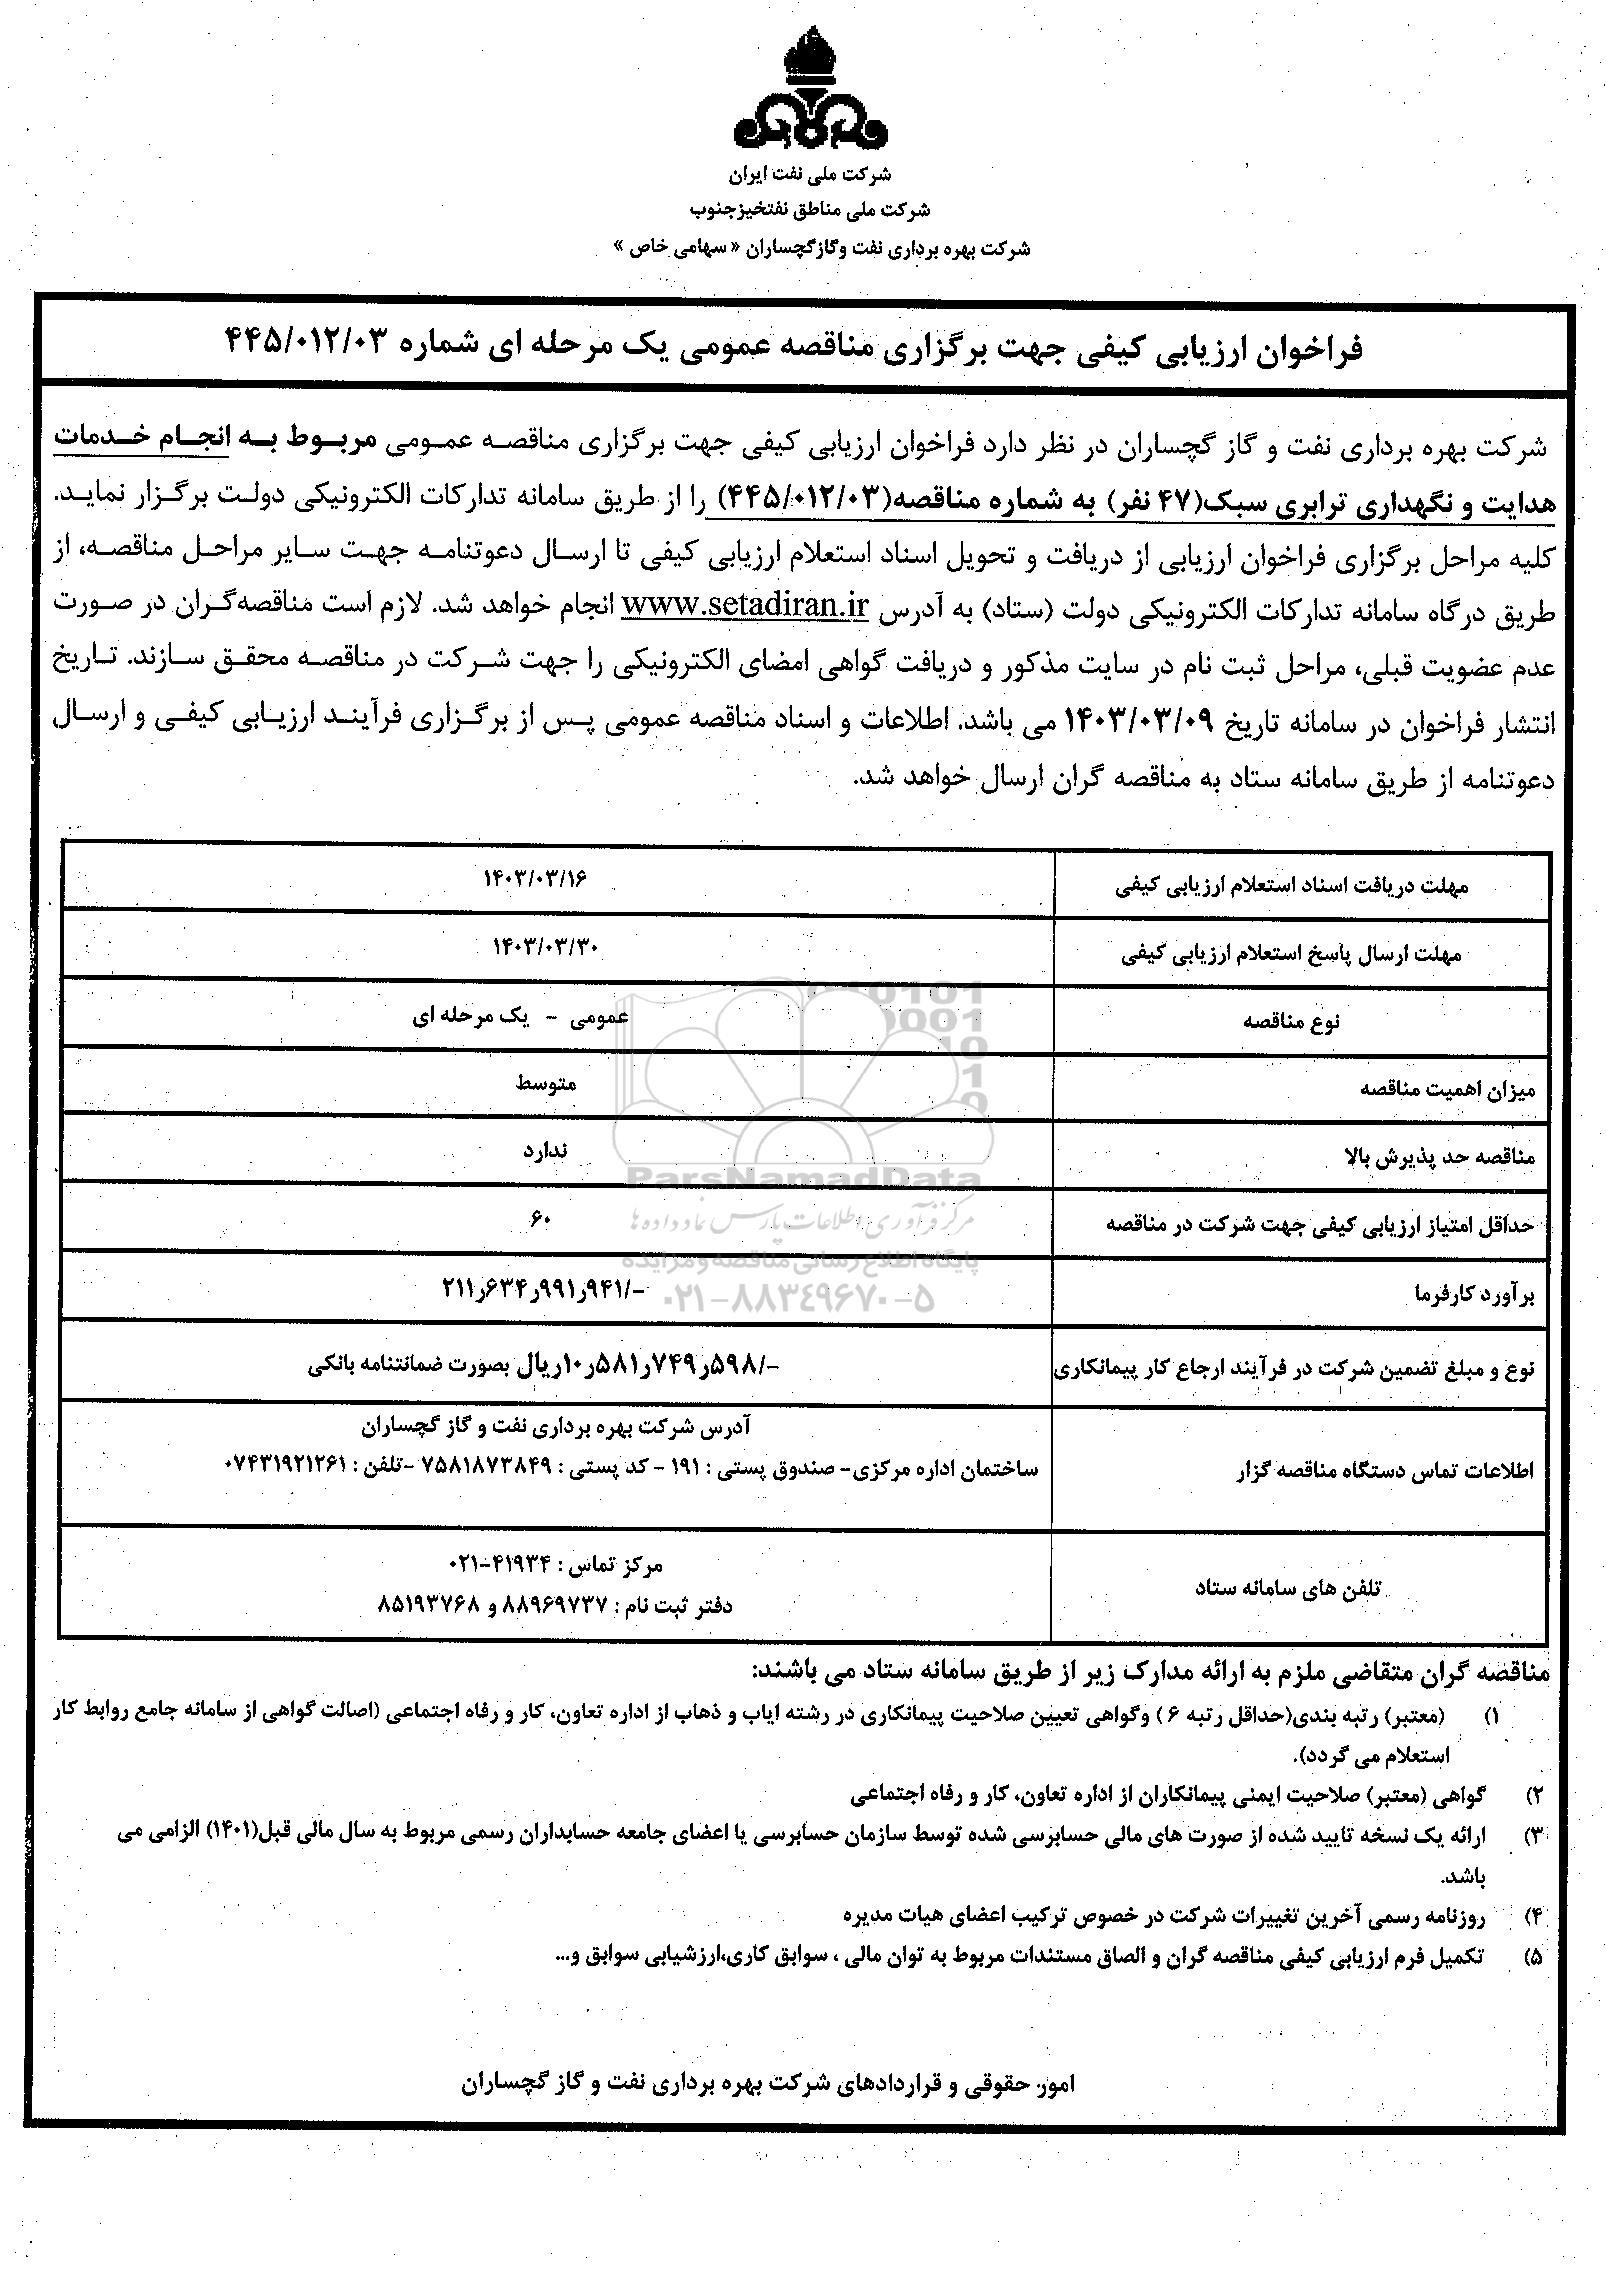 شرکت ملی نفت ایران
شرکت ملی مناطق نفتخیزجنوب
شرکت بهره برداری نفت وگازگچساران « سهامی خاص »
فراخوان ارزیابی کیفی جهت برگزاری مناقصه عمومی یک مرحله ای شماره ۴۴۵/۰۱۲/۰۳
شرکت بهره برداری نفت و گاز گچساران در نظر دارد فراخوان ارزیابی کیفی جهت برگزاری مناقصه عمومی مربوط به انجام خدمات
هدایت و نگهداری ترابری سبک(۴۷ نفر) به شماره مناقصه(۴۴۵/۰۱۲/۰۳) را از طریق سامانه تدارکات الکترونیکی دولت برگزار نماید.
کلیه مراحل برگزاری فراخوان ارزیابی از دریافت و تحویل اسناد استعلام ارزیابی کیفی تا ارسال دعوتنامه جهت سایر مراحل مناقصه، از
طریق درگاه سامانه تدارکات الکترونیکی دولت (ستاد) به آدرس www.setadiran.ir انجام خواهد شد. لازم است مناقصه‌گران در صورت
عدم عضویت قبلی، مراحل ثبت نام در سایت مذکور و دریافت گواهی امضای الکترونیکی را جهت شرکت در مناقصه محقق سازند. تاریخ
انتشار فراخوان در سامانه تاریخ ۱۴۰۳/۰۳/۰۹ می باشد. اطلاعات و اسناد مناقصه عمومی پس از برگزاری فرآیند ارزیابی کیفی و ارسال
دعوتنامه از طریق سامانه ستاد به مناقصه گران ارسال خواهد شد.
مهلت دریافت اسناد استعلام ارزیابی کیفی ۱۴۰۳/۰۳/۱۶
مهلت ارسال پاسخ استعلام ارزیابی کیفی ۱۴۰۳/۰۳/۳۰
نوع مناقصه عمومی - یک مرحله ای
میزان اهمیت مناقصه متوسط
مناقصه حد پذیرش بالا ندارد
ParsNamadData
حداقل امتیاز ارزیابی کیفی جهت شرکت در مناقصه ۶۰
مرکز فرآوری اطلاعات پارس نماد داده ها
پایگاه اطلاع رسانی مناقصه و مزایده
برآورد کارفرما ۲۱۱ر۶۳۴ر۹۹۱ر۹۴۱/-
۰۲۱-۸۸۳۴۹۶۷۰-۵
نوع و مبلغ تضمین شرکت در فرآیند ارجاع کار پیمانکاری -/۱۰ر۵۸۱ر۷۴۹ر۵۹۸ریال بصورت ضمانتنامه بانکی
آدرس شرکت بهره برداری نفت و گاز گچساران
اطلاعات تماس دستگاه مناقصه گزار ساختمان اداره مرکزی- صندوق پستی : ۱۹۱ - کد پستی : ۷۵۸۱۸۷۳۸۴۹ -تلفن : ۰۷۴۳۱۹۲۱۲۶۱
مرکز تماس : ۴۱۹۳۴-۰۲۱
تلفن های سامانه ستاد
دفتر ثبت نام : ۸۸۹۶۹۷۳۷ و ۸۵۱۹۳۷۶۸
مناقصه گران متقاضی ملزم به ارائه مدارک زیر از طریق سامانه ستاد می باشند:
۱) (معتبر) رتبه بندی(حداقل رتبه ۶ ) وگواهی تعیین صلاحیت پیمانکاری در رشته ایاب و ذهاب از اداره تعاون، کار و رفاه اجتماعی (اصالت گواهی از سامانه جامع روابط کار
استعلام می گردد).
۲) گواهی (معتبر) صلاحیت ایمنی پیمانکاران از اداره تعاون، کار و رفاه اجتماعی
۳) ارائه یک نسخه تایید شده از صورت های مالی حسابرسی شده توسط سازمان حسابرسی یا اعضای جامعه حسابداران رسمی مربوط به سال مالی قبل(۱۴۰۱) الزامی می
باشد.
۴) روزنامه رسمی آخرین تغییرات شرکت در خصوص ترکیب اعضای هیات مدیره
۵) تکمیل فرم ارزیابی کیفی مناقصه گران و الصاق مستندات مربوط به توان مالی ، سوابق کاری،ارزشیابی سوابق و...
امور حقوقی و قراردادهای شرکت بهره برداری نفت و گاز گچساران